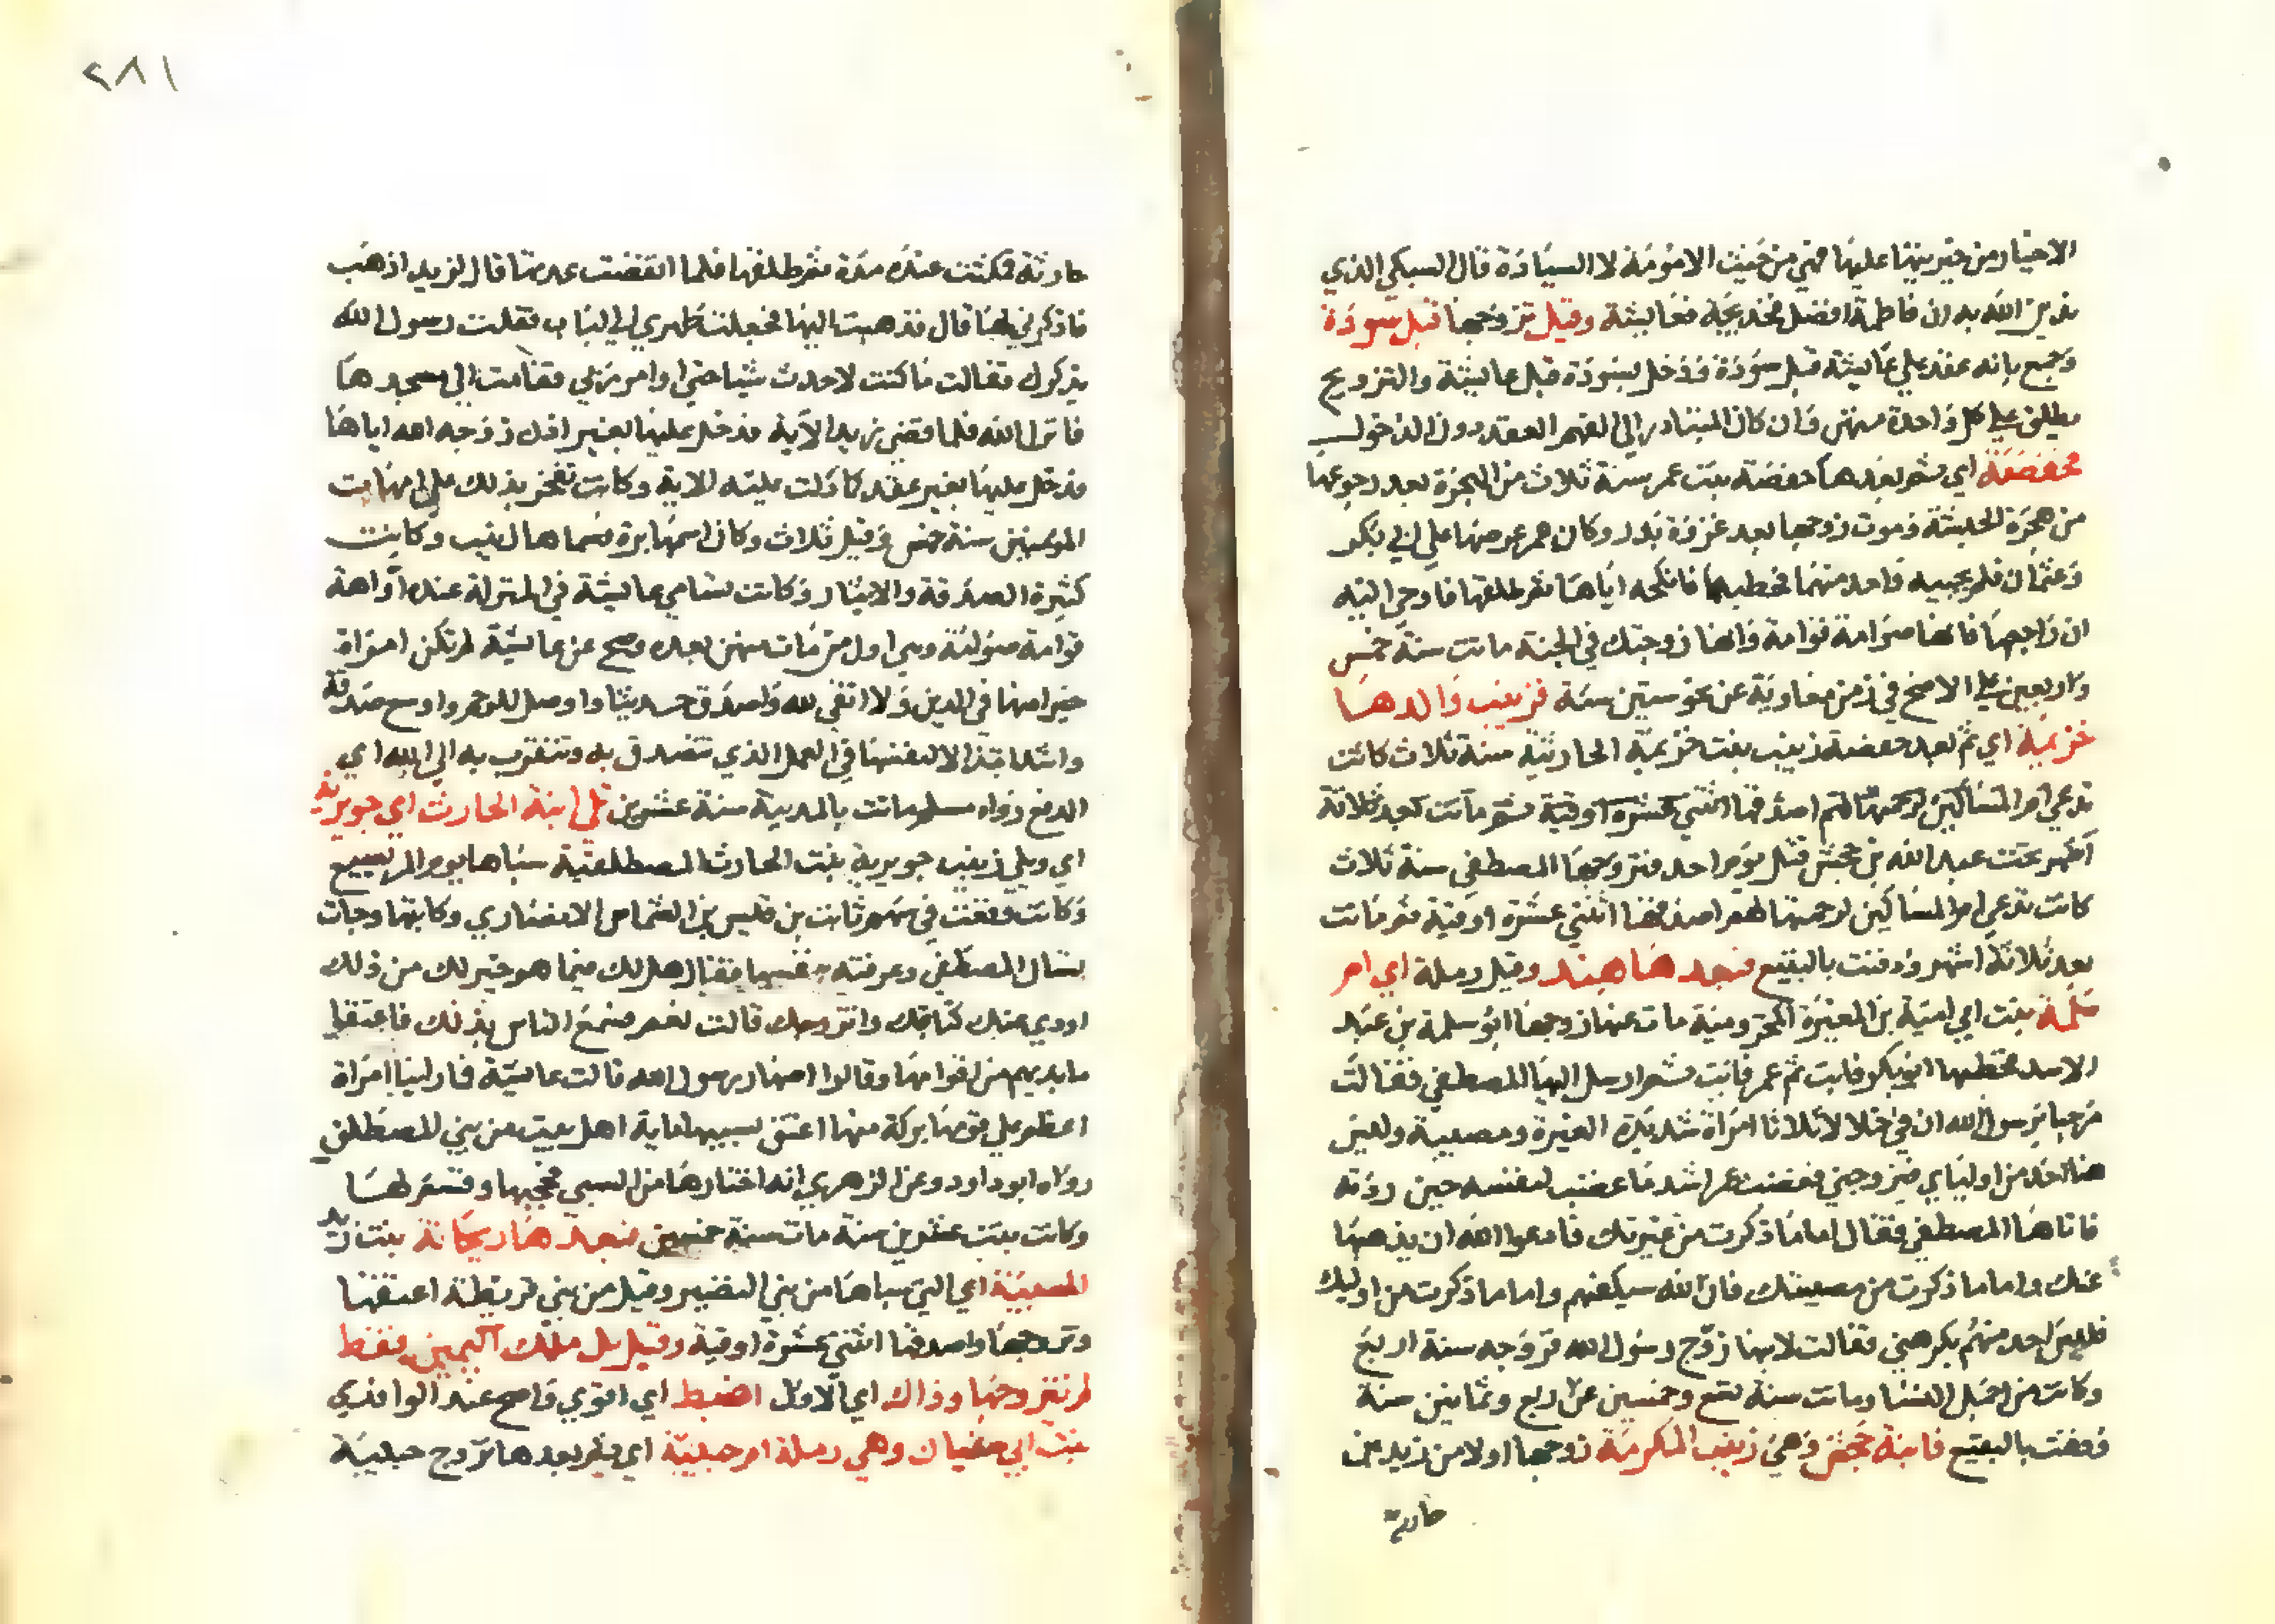 الاخيار من خير بيتها عليها فهي من حيث الامومة لا السيادة قال السبكي الذي
ندين الله به ان فاطمة افضل فخديجة فعايشة وقيل تزوجها قبل سودة
وجمع بانه عقد علي عايشة قبل سودة ودخل بسودة قبل عايشة والتزويج
يطلق علي كل واحدة منهن وان كان المتبادر الي الفهم العقد دون الدخول
فحفصة اي ثم بعدها حفصة بنت عمر سنة ثلاث من الهجرة بعد رجوعها
من هجرة الحبشة وموت زوجها بعد غزوة بدر وكان عمر عرضها علي ابي بكر
وعثمان فلم يجبه واحد منهما فخطبها فانكحه اياها ثم طلقها فاوحي اليه
ان راجعها فانها صوامة قوامة وانها زوجتك في الجنة ماتت سنة خمس
واربعين علي الاصح في زمن معاوية عن نحو ستين سنة فزينب والدها
خزيمة اي ثم بعد حفصة زينب بنت خزيمة الحارثية سنة ثلاث كانت
تدعي ام المساكين لرحمتها لهم اصدقها اثنتي عشرة اوقية ثم ماتت بعد ثلاثة
اظهر تحت عبد الله بن جحش قتل يوم احد فتزوجها المصطفي سنة ثلاث
كانت تدعي ام المساكين لرحمتها لهم اصدقها اثنتي عشرة اوقية ثم ماتت
بعد ثلاثة اشهر ودفنت بالبقيع فبعدها هند وقيل رملة اي ام
سلمة بنت ابي امية بن المغيرة المخزومية مات عنها زوجها ابو سلمة بن عبد
الاسد فخطبها ابو بكر فابت ثم عمر فابت ثم ارسل اليها المصطفي فقالت
مرحبا برسول الله ان في خلالا ثلاثا امراة شديدة الغيرة ومصبية وليس
هنا احد من اوليآي فيزوجني فغضب عمر اشد ما غضب لنفسه حين ردته
فاتاها المصطفي فقال اما ما ذكرت من غيرتك فادعوا الله ان يذهبها
عنك واما ما ذكرت من مصيبتك فان الله سيكفيهم واما ما ذكرت من اوليك
فليس احد منهم يكرهني فقالت لابنها زوج رسول الله فزوجه سنة اربع
وكانت من اجمل النسا وماتت سنة تسع وخمسين عن اربع وثمانين سنة
ودفنت بالبقيع فابنة جحش وهي زينب المكرمة زوجها اولا من زيد بن
حارثة
٢٨١
حارثة فمكثت عنده مدة ثم طلقها فلما انقضت عدتها قال لزيد اذهب
فاذكرني لها قال فذهبت اليها فجعلت ظهري الي الباب فقلت رسول الله
يذكرك فقالت ما كنت لاحدث شيا حتي اوامر ربي فقامت الي مسجدها
فانزل الله فلما قضي زيد الآية فدخل عليها بغير اذن زوجه الله اياها
فدخل عليها بغير عقد كما دلت عليه الاية وكانت تفخر بذلك علي امهات
المومنين سنة خمس وقيل ثلاث وكان اسمها برة فسماها زينب وكانت
كثيرة الصدقة والايثار وكانت تسامي عايشة في المنزلة عنده اواهة
قوامة صوامة وهي اول من مات منهن بعده وصح عن عايشة لم تكن امراة
خيرا منها في الدين ولا اتقي لله واصدق حديثا واوصل للرحم واوسع صدقة
واشد ابتذالا لنفسها في العمل الذي تتصدق به وتتقرب به الي الله اي
الدبغ رواه مسلم ماتت بالمدينة سنة عشرين تلي ابنة الحارث اي جويرية
اي ويلي زينب جويرية بنت الحارث المصطلقية سباها يوم المريسيع
وكانت وقعت في سهم ثابت بن قيس بن الشماس الانصاري وكاتبها وجات
تسال المصطفي وعرفته بنفسها فقال هل لك فيما هو خير لك من ذلك
اودي عنك كتابتك واتزوجك قالت نعم فسمع الناس بذلك فاعتقوا
ما بديهم من قومها وقالوا اصهار رسول الله قالت عايشة فما راينا امراة
اعظم علي قومها بركة منها اعتق بسببها ماية اهل بيت من بني المصطلق
رواه ابو داود وعن الزهري انه اختارها من السبي فحجبها وقسم لها
وكانت بنت عشرين سنة مات سنة خمسين فبعدها ريحانة بنت زيد
المسبية اي التي سباها من بني النضير وقيل من بني قريظة اعتقها
وتزوجها واصدقها اثنتي عشرة اوقية وقيل بل ملك اليمين فقط
لم يتزوجها وذاك اي الاول اضبط اي اقوي واصح عند الواقدي
بنت ابي سفيان وهي رملة ام حبيبة اي ثم بعدها تزوج حبيبة